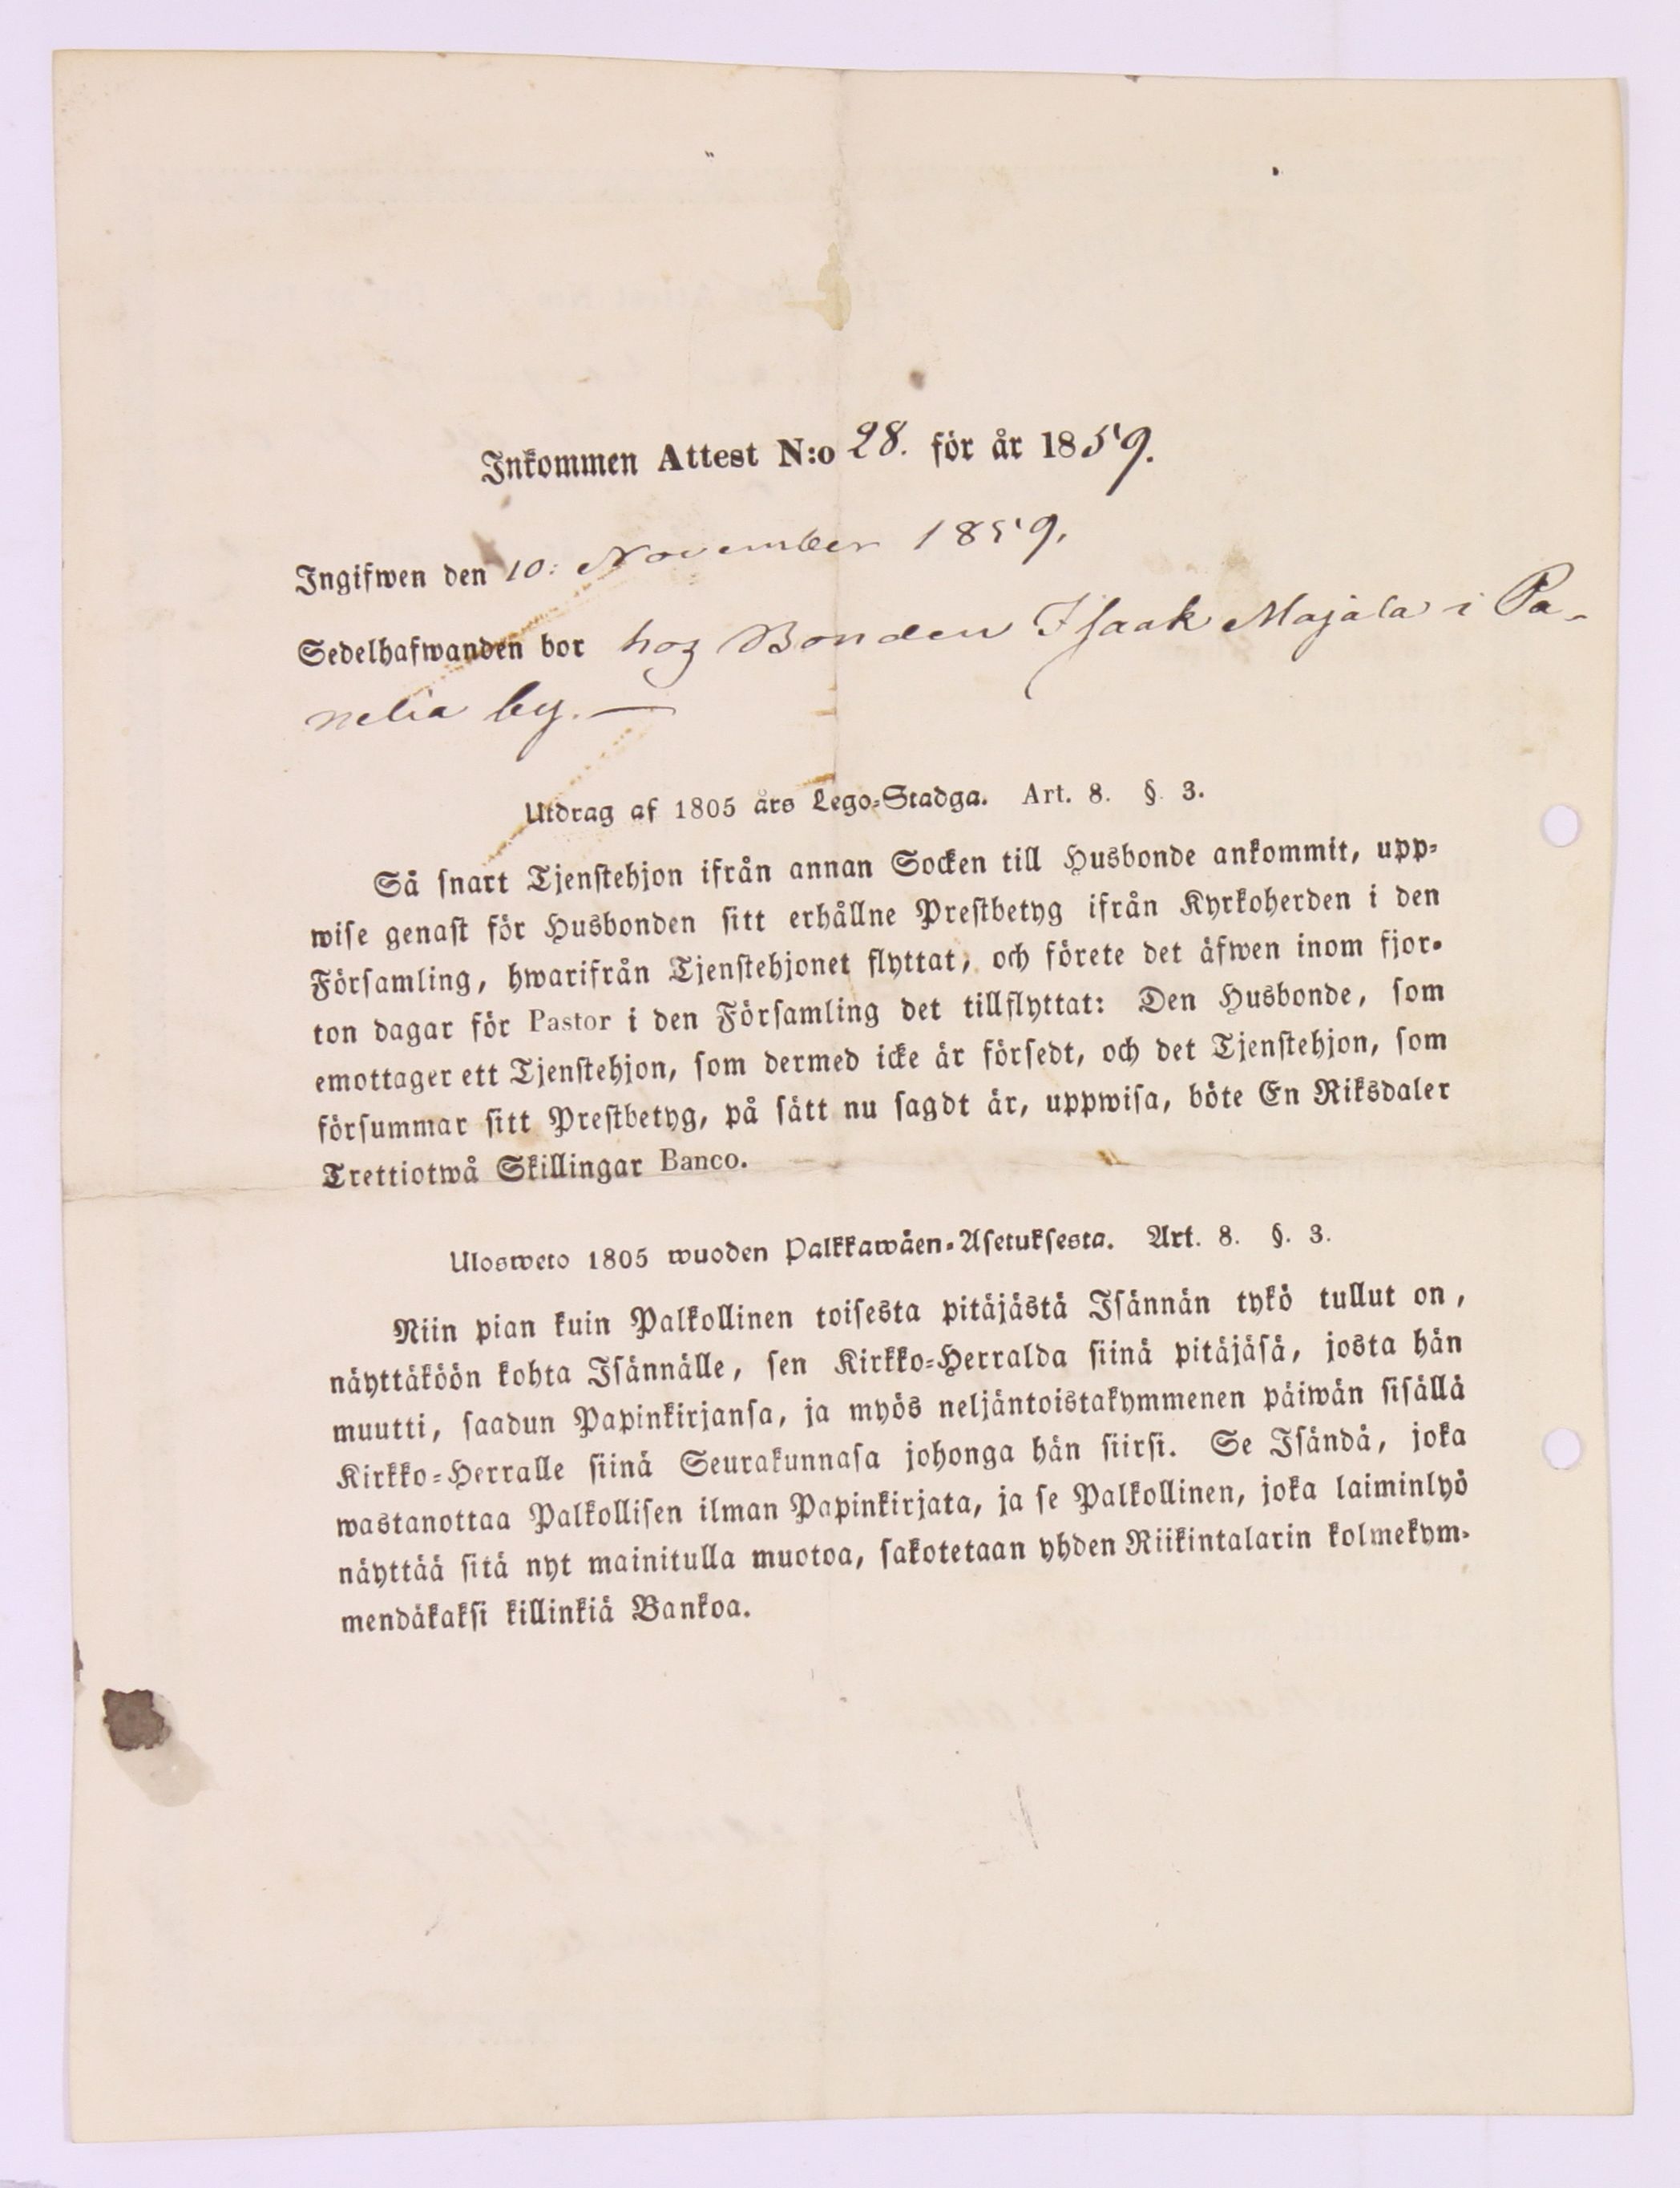 Inkommen Attest N:o 28. för år 1859.
Ingifwen den 10: November 1859.
Sedelhafwanden bor hoz Bonden Isaak Majala i Pa-
nelia by. —
Utdrag af 1805 års Lego-Stadga. Art. 8. §. 3.
Så snart Tjenstehjon ifrån annan Socken till Husbonde ankommit, upp-
wise genast för Husbonden sitt erhållne Prestbetyg ifrån Kyrkoherden i den
Församling, hwarifrån Tjenstehjonet flyttat, och förete det äfwen inom fjor-
ton dagar för Pastor i den Församling det tillflyttat: Den Husbonde, som
emottager ett Tjenstehjon, som dermed icke är försedt, och det Tjenstehjon, som
försummar sitt Prestbetyg, på sätt nu sagdt är, uppwisa, böte En Riksdaler
Trettiotwå Skillingar Banco.
Ulosweto 1805 wuoden Palkkawäen-Asetuksesta. Art. 8. §. 3.
Niin pian kuin Palkollinen toisesta pitäjästä Isännän tykö tullut on,
näyttäköön kohta Isännälle, sen Kirkko-Herralda siinä pitäjäsä, josta hän
muutti, saadun Papinkirjansa, ja myös neljäntoistakymmenen päiwän sisällä
Kirkko-Herralle siinä Seurakunnasa johonga hän siirsi. Se Isändä, joka
wastanottaa Palkollisen ilman Papinkirjata, ja se Palkollinen, joka laiminlyö
näyttää sitä nyt mainitulla muotoa, sakotetaan yhden Riikintalarin kolmekym-
mendäkaksi killinkiä Bankoa.